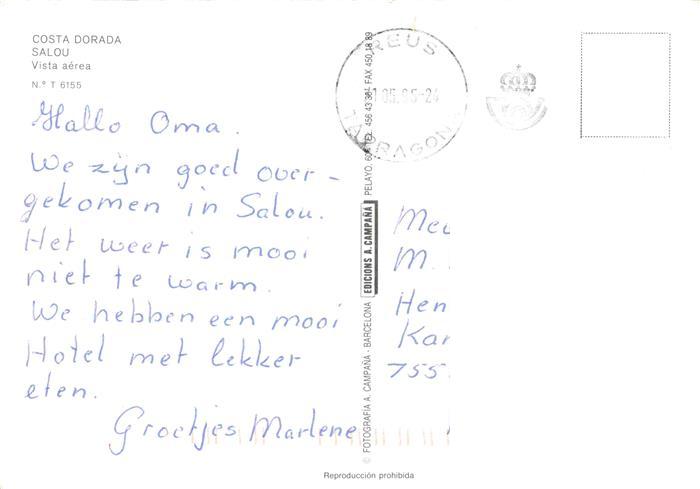 COSTA DORADA
SALOU
Vista aérea
N.º T 6155
Hallo Oma.
We zijn goed over-
gekomen in Salou.
Het weer is mooi
niet te warm.
We hebben een mooi
Hotel met lekker
eten.
Groetjes Marlene
© FOTOGRAFIA A. CAMPAÑA - BARCELONA
EDICIONS A. CAMPAÑA
PELAYO, TEL. 456 43 36 FAX 450 18 89
REUS
05.95-24
TARRAGONA
M.
Hen
Kar
755
Reproducción prohibida